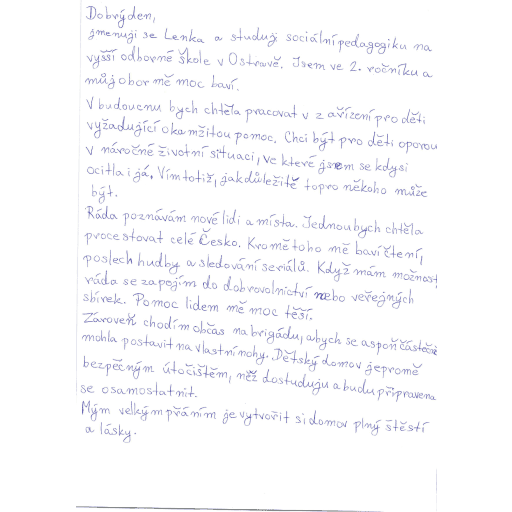 Dobrý den,
jmenuji se Lenka a studuji sociální pedagogiku na
vyšší odborné škole v Ostravě. Jsem ve 2. ročníku a
můj obor mě moc baví.
V budoucnu bych chtěla pracovat v zařízení pro děti
vyžadující okamžitou pomoc. Chci být pro děti oporou
v náročné životní situaci, ve které jsem se kdysi
ocitla i já. Vím totiž, jak důležité to pro někoho může
být.
Ráda poznávám nové lidi a místa. Jednou bych chtěla
procestovat celé Česko. Kromě toho mě baví čtení,
poslech hudby a sledování seriálů. Když mám možnost,
ráda se zapojím do dobrovolnictví nebo veřejných
sbírek. Pomoc lidem mě moc těší.
Zároveň chodím občas na brigádu, abych se aspoň částečně
mohla postavit na vlastní nohy. Dětský domov je pro mě
bezpečným útočištěm, než dostuduju a budu připravena
se osamostatnit.
Mým velkým přáním je vytvořit si domov plný štěstí
a lásky.